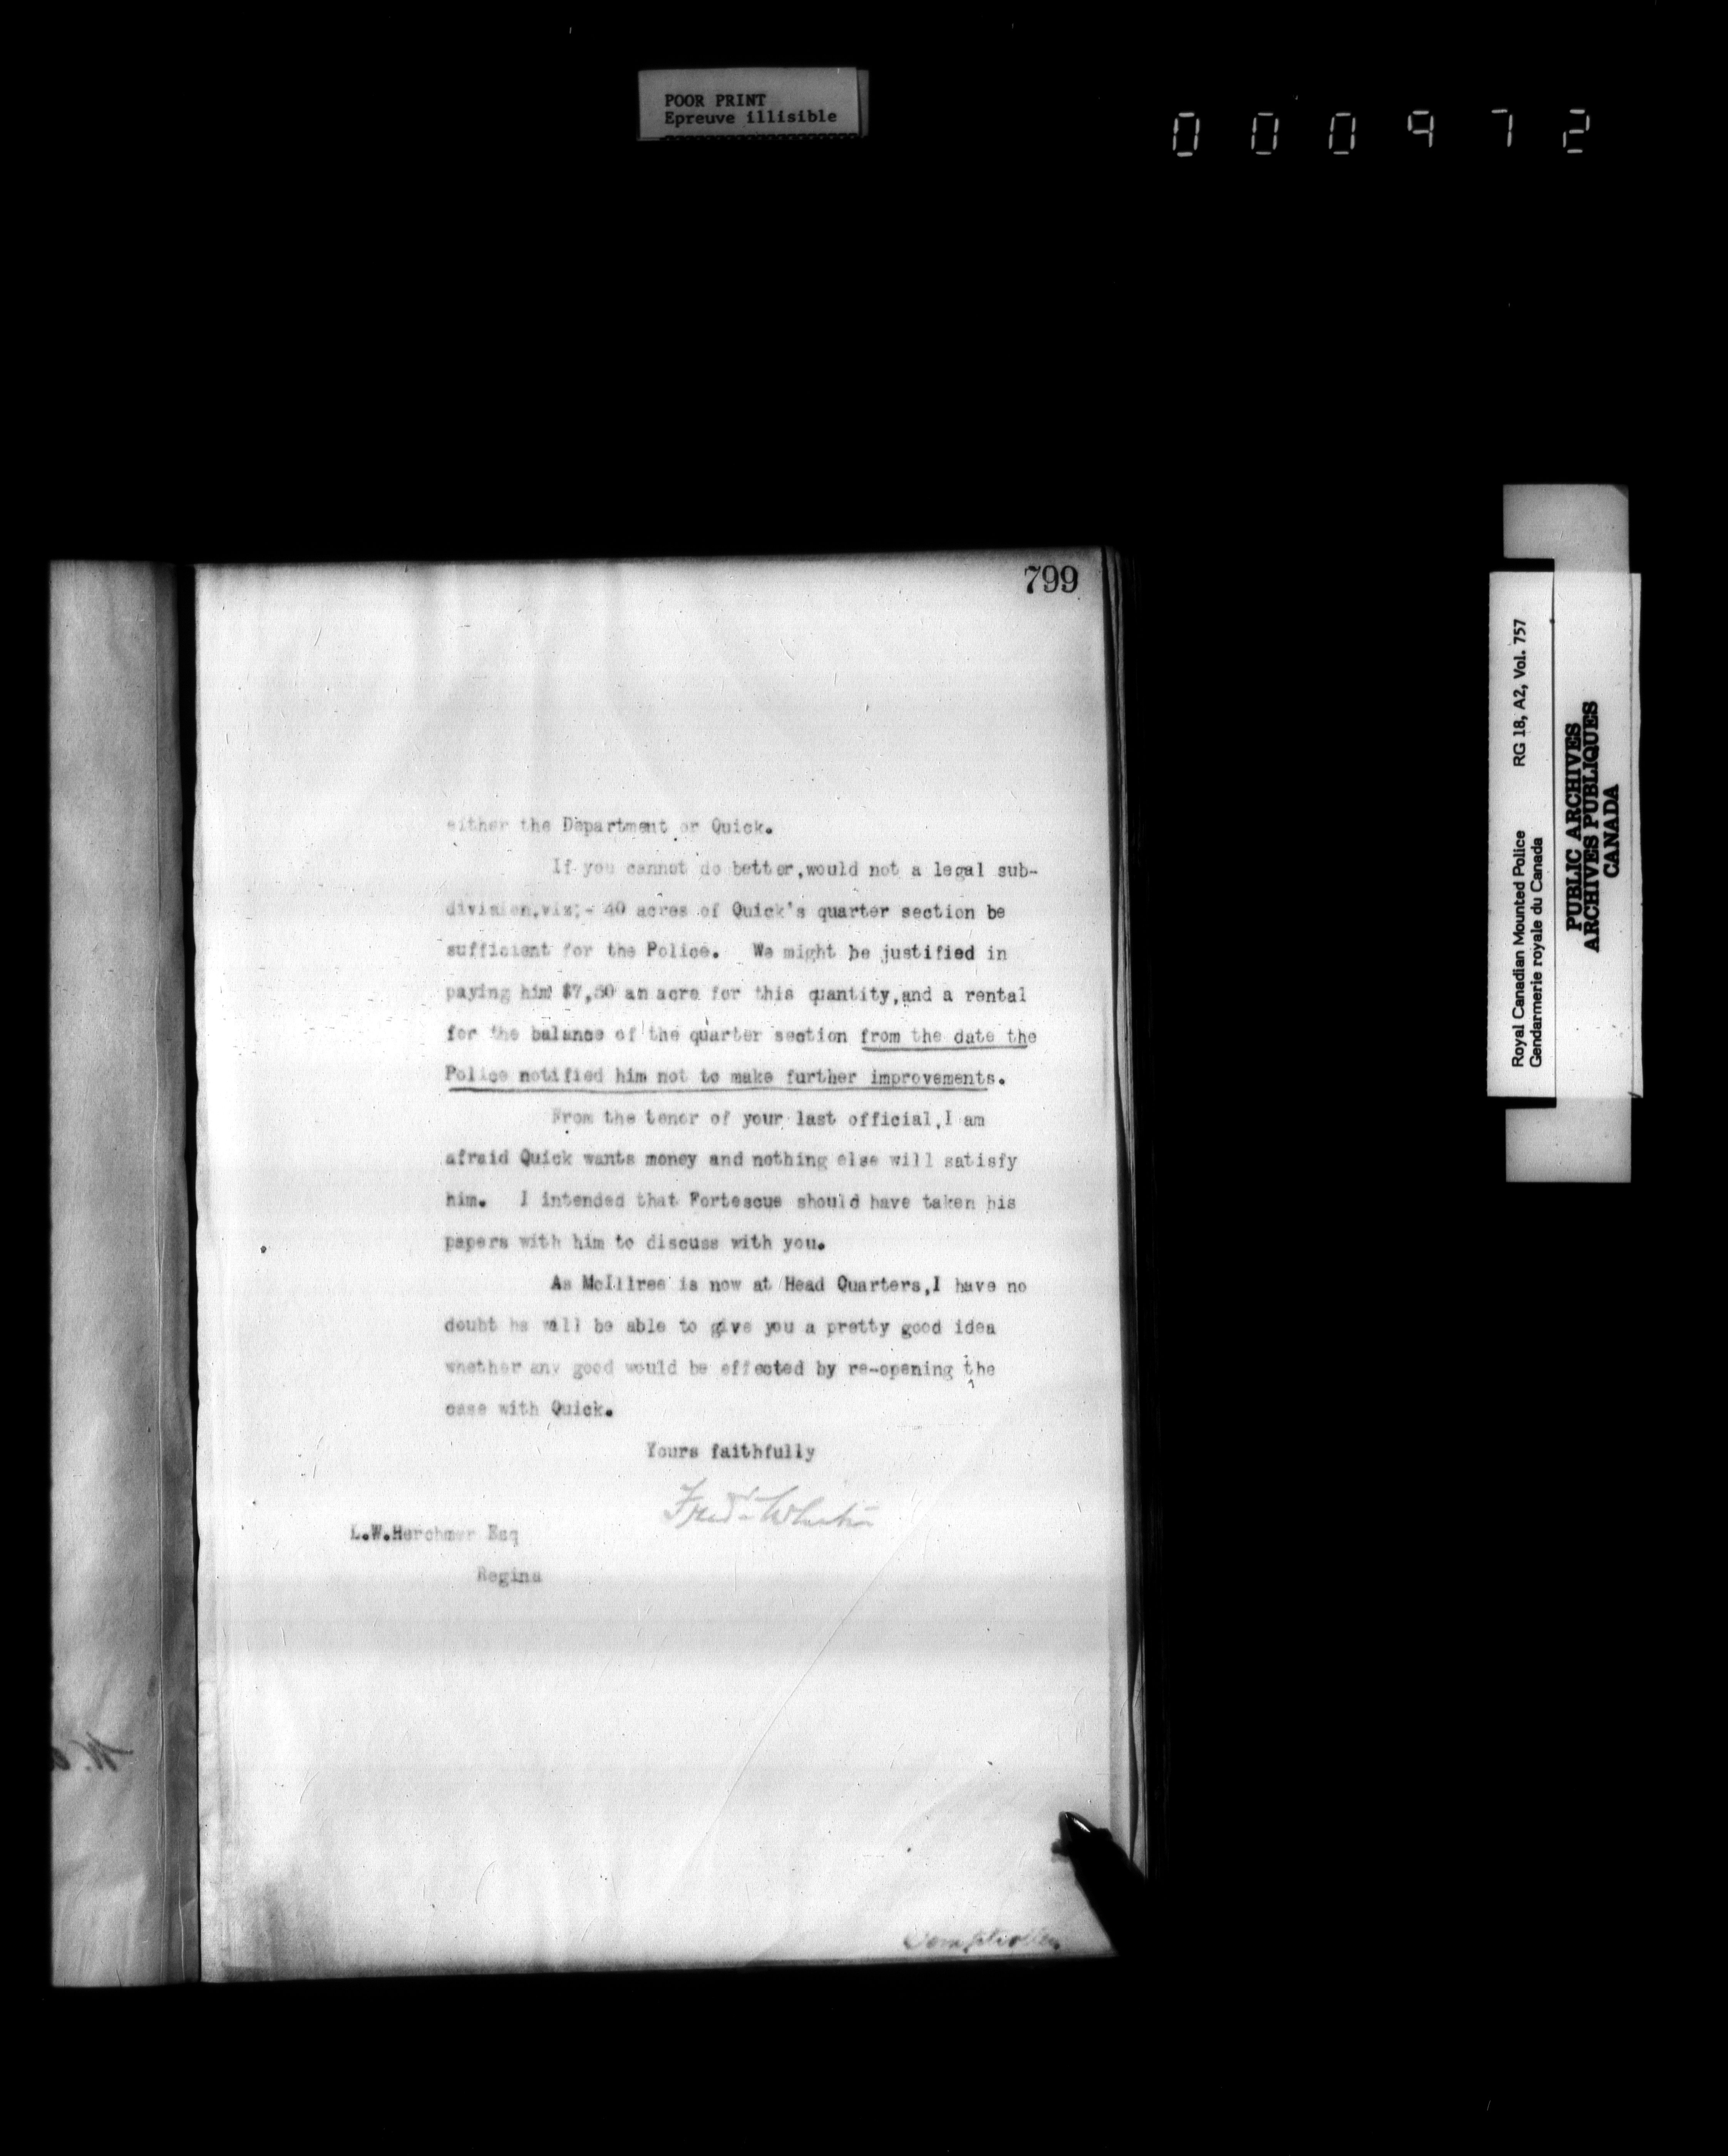 POOR PRINT
Epreuve illisible
000972
799
either the Department or Quick.
If you cannot do better,would not a legal sub-
division,viz;- 40 acres of Quick's quarter section be
sufficient for the Police. We might be justified in
paying him $7,50 an acre for this quantity,and a rental
for the balance of the quarter section from the date the
Police notified him not to make further improvements.
From the tenor of your last official,I am
afraid Quick wants money and nothing else will satisfy
him. I intended that Fortescue should have taken his
papers with him to discuss with you.
As McIllree is now at Head Quarters,I have no
doubt he will be able to give you a pretty good idea
whether any good would be effected by re-opening the
case with Quick.
Yours faithfully
Fred White
L.W.Herchmer Esq
Regina
Comptroller
Royal Canadian Mounted Police RG 18, A2, Vol. 757
Gendarmerie royale du Canada
PUBLIC ARCHIVES
ARCHIVES PUBLIQUES
CANADA